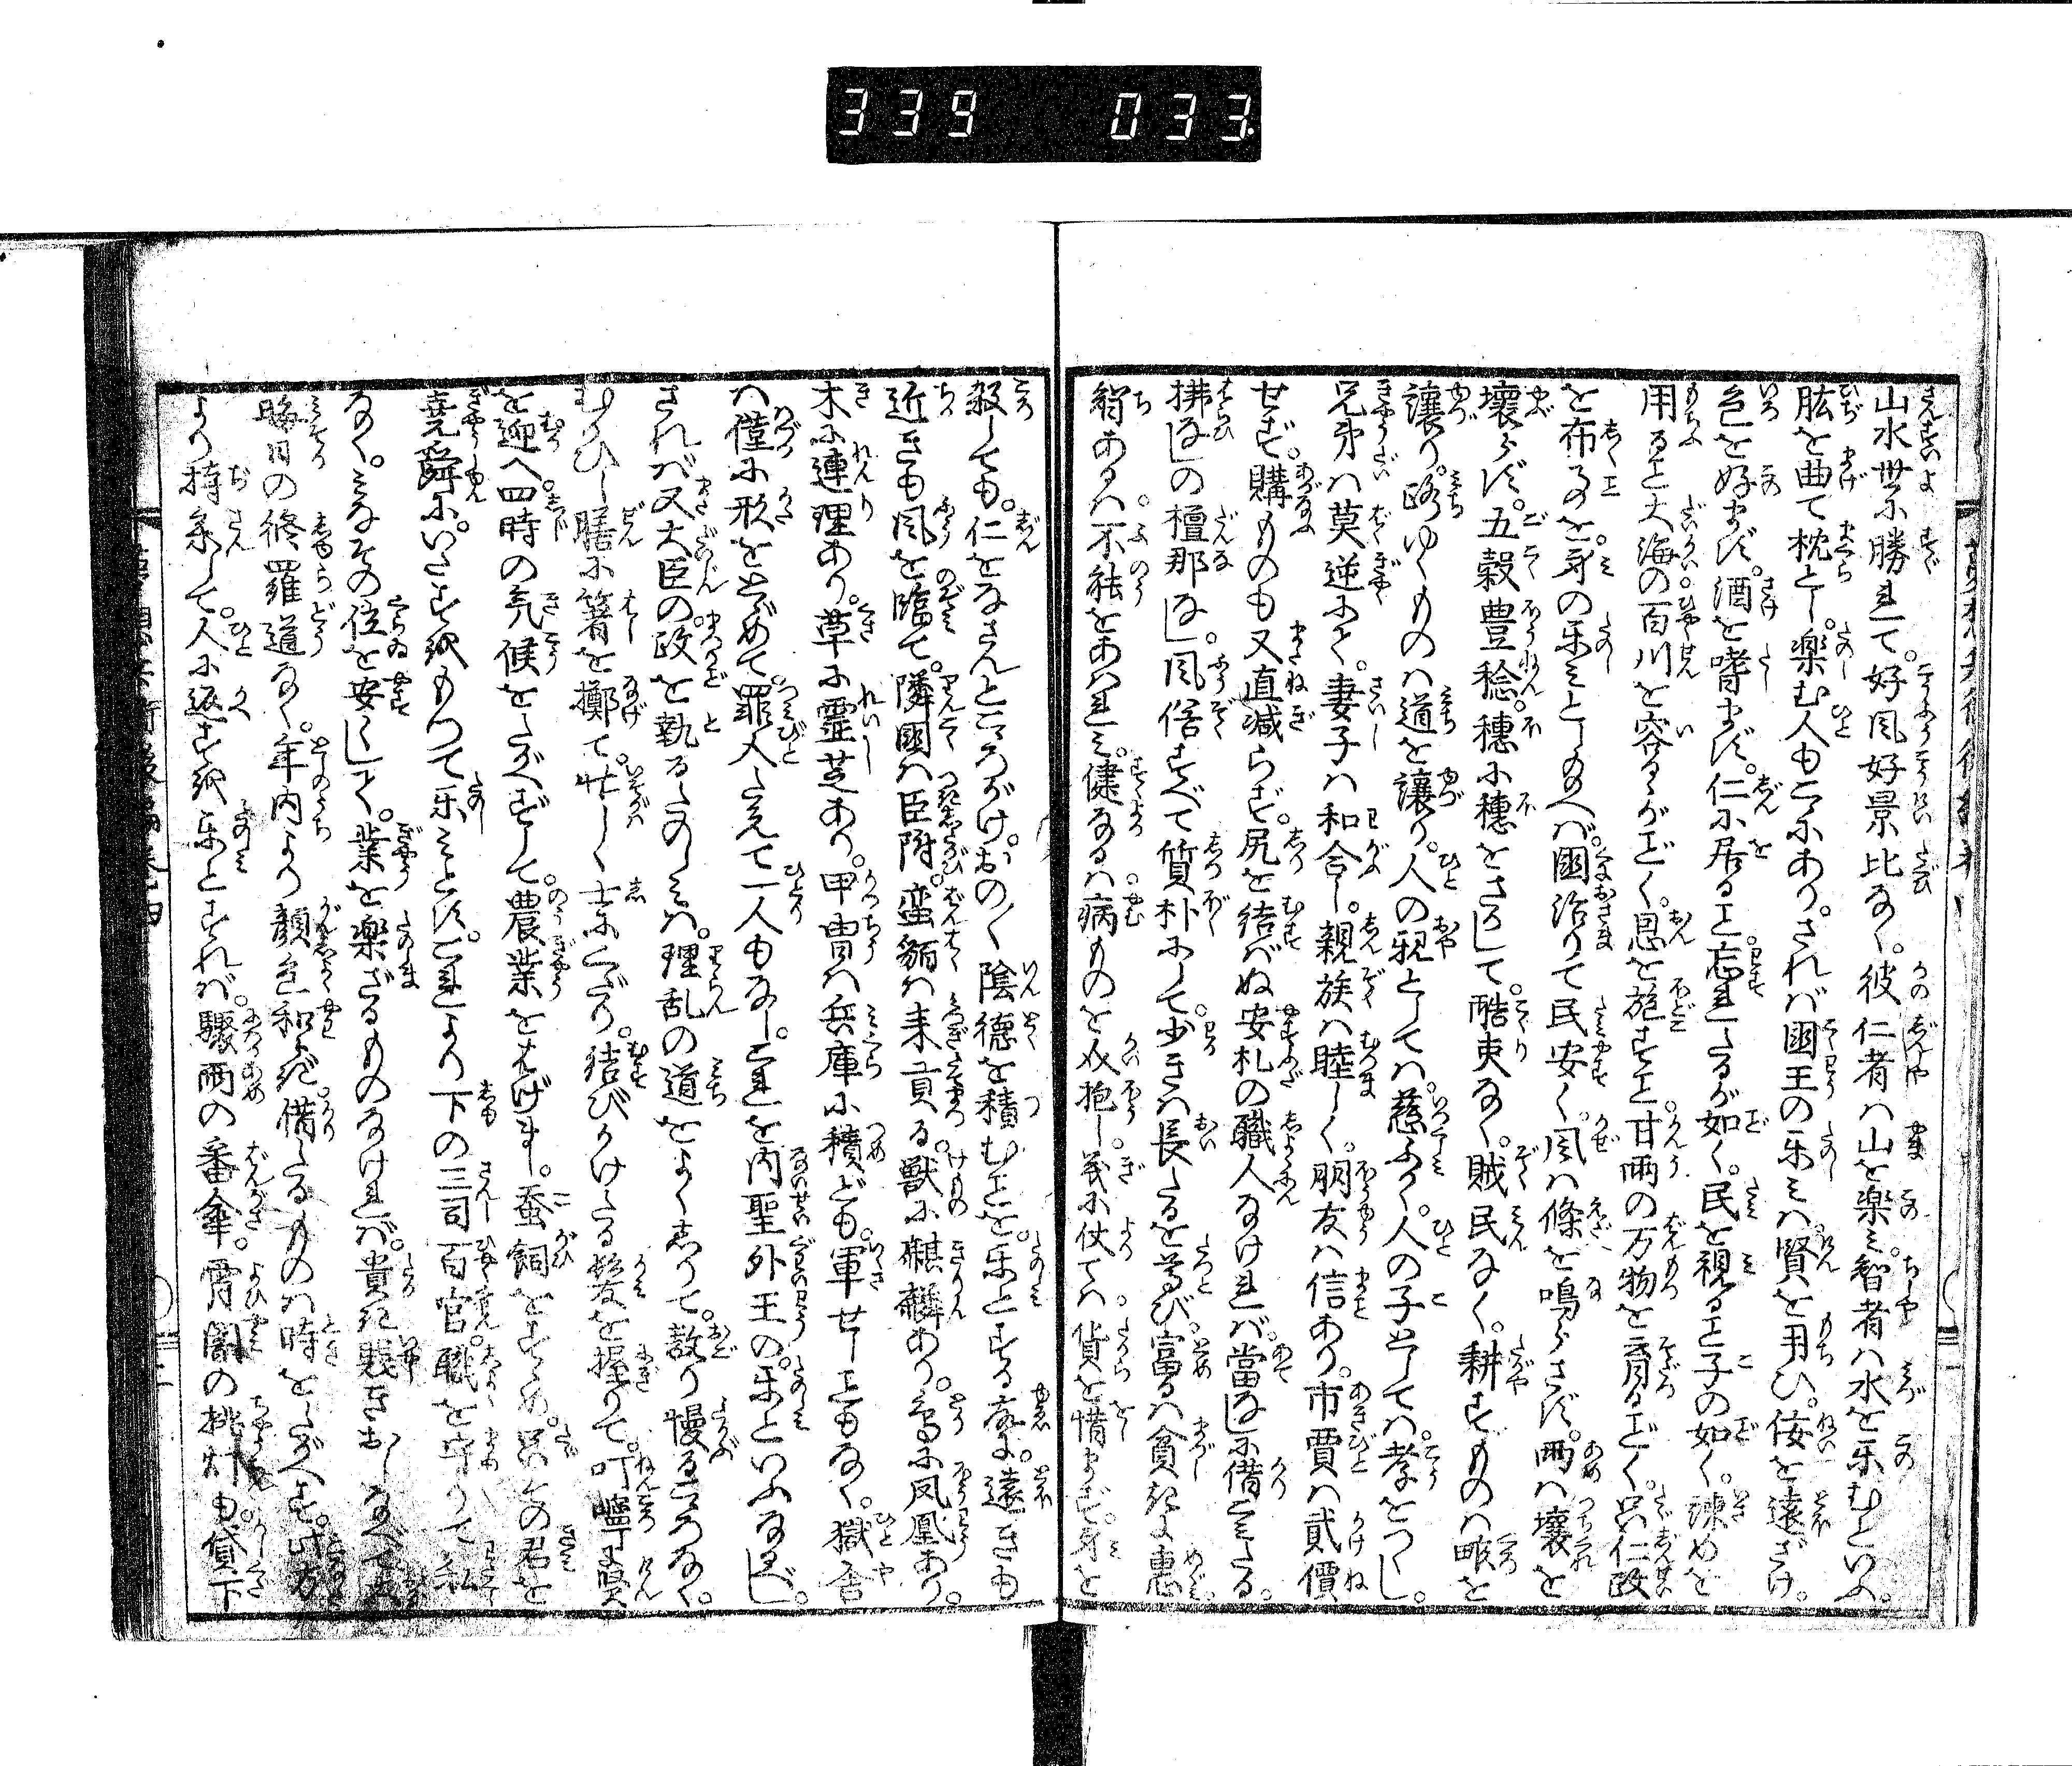 339 033
山水世に勝れて。好風好景比なく。彼仁者は山を楽み。智者は水を楽むといふ。
肱を曲て枕とし。楽む人もこゝにあり。されば国王の楽みは。賢を用ひ。佞を遠ざけ。
色を好まず。酒を嗜まず。仁に居ると忘れたるが如く。民を視ると子の如く。諫めを
用ると大海の百川を容るゝがごとく。恩を施すと。甘雨の万物を育るごとく。只仁政
を布るのを。身の楽みとし給へば。国治りて民安く。風は條を鳴らさず。雨は壤を
壞らず。五穀豊稔。穂に穂をさかして。酷吏なく。賊民なく。耕すものは畷を
讓り。路ゆくものは道を讓り。人の親としては。慈ふかく。人の子としては。孝をつくし。
兄弟は莫逆にして。妻子は和合し。親族は睦しく。朋友は信あり。市賈は貳價
せず。購ものも又直減らず。尻を結ばぬ安札の職人なければ。當なしに借こみたる。
拂なしの檀那なし。風俗すべて質朴にして。少きは長たるを尊び。富るは貧きに惠。
智あるは不能をあはれみ。健なるは病ものを介抱し。義に仗ては。貨を惜まず。身を
殺しても。仁をなさんところがけ。おの〱陰徳を積むとを。楽とする故に。遠きも
近きも風を臨て。隣國は臣附。蛮貊は来貢る。獣に麒麟あり。鳥に凤凰あり。
木に連理あり。草に霊芝あり。甲冑は兵庫に積ども。軍せしともなく。獄舎
は僅に形をとゞめて。罪人たえて一人もなし。これを内聖外王の。楽といふなるべし。
されば又大臣の。政を執るたのしみは。理乱の道をよくしりて。敖り慢るこゝろなく。
むかひし膳に箸を擲て。忙しく士にくだり。結びかけたる髪を握りて。叮嚀に賢
を迎へ。四時の氣候をたがへずして。農業をはげまし。蚕飼をすゝめ。只その君を
堯舜に。いたすをもつて楽みとす。これより下の三司百官。職を守りて私
なく。みなその位を安くして。業を楽ざるものなければ。貴き賤きおしなべて。
晦日の修羅道なく。年内より顔色和らぎ。借たるものは時をたがへず。此方
より持参して。人に返すを楽とすれば。驟雨の番傘。宵闇の挑灯も。貸下